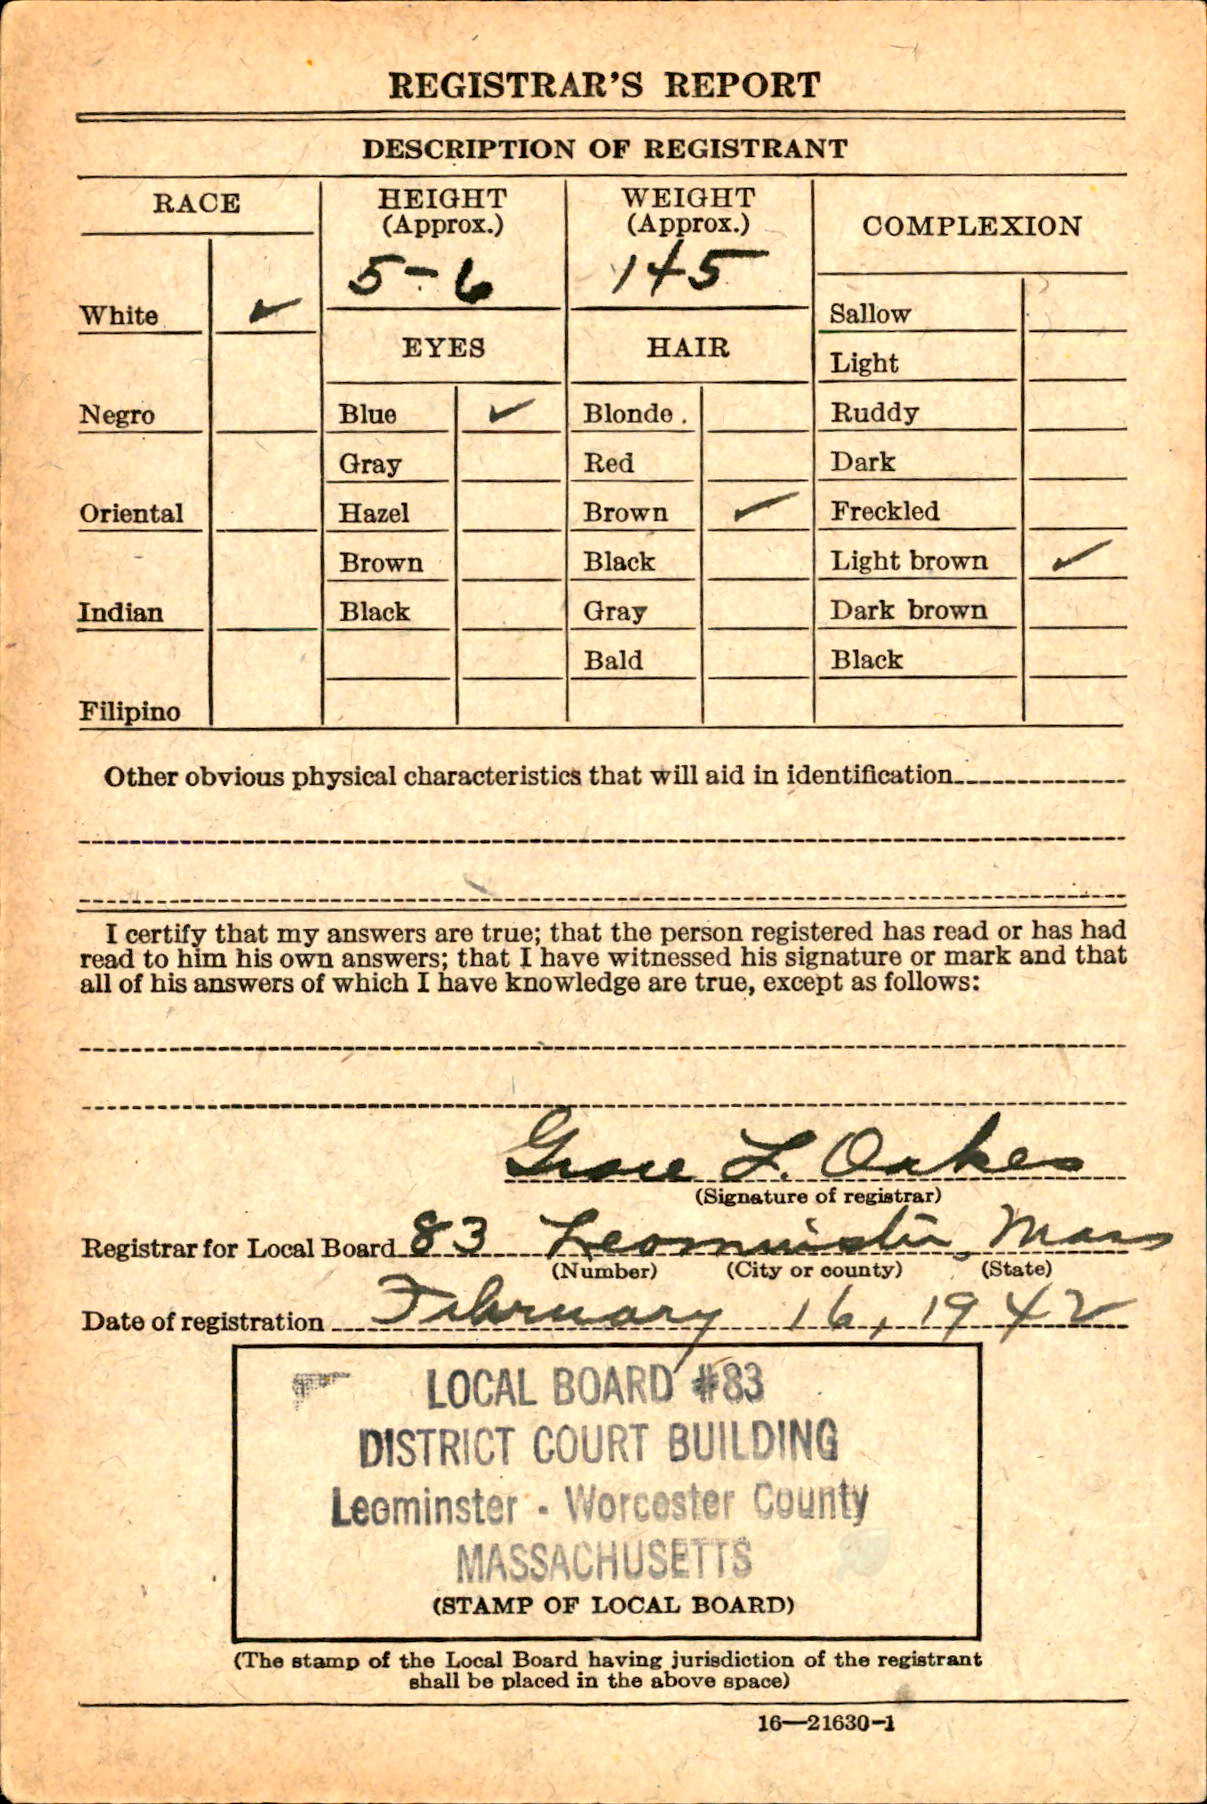 REGISTRAR'S REPORT
DESCRIPTION OF REGISTRANT
RACE
White ✓
Negro
Oriental
Indian
Filipino
HEIGHT
(Approx.)
5-6
EYES
Blue ✓
Gray
Hazel
Brown
Black
WEIGHT
(Approx.)
145
HAIR
Blonde
Red
Brown ✓
Black
Gray
Bald
COMPLEXION
Sallow
Light
Ruddy
Dark
Freckled
Light brown ✓
Dark brown
Black
Other obvious physical characteristics that will aid in identification
I certify that my answers are true; that the person registered has read or has had
read to him his own answers; that I have witnessed his signature or mark and that
all of his answers of which I have knowledge are true, except as follows:
Grace L. Oakes
(Signature of registrar)
Registrar for Local Board 83 Leominster, Mass
(Number) (City or county) (State)
Date of registration February 16, 1942
LOCAL BOARD #83
DISTRICT COURT BUILDING
Leominster - Worcester County
MASSACHUSETTS
(STAMP OF LOCAL BOARD)
(The stamp of the Local Board having jurisdiction of the registrant
shall be placed in the above space)
16—21630-1